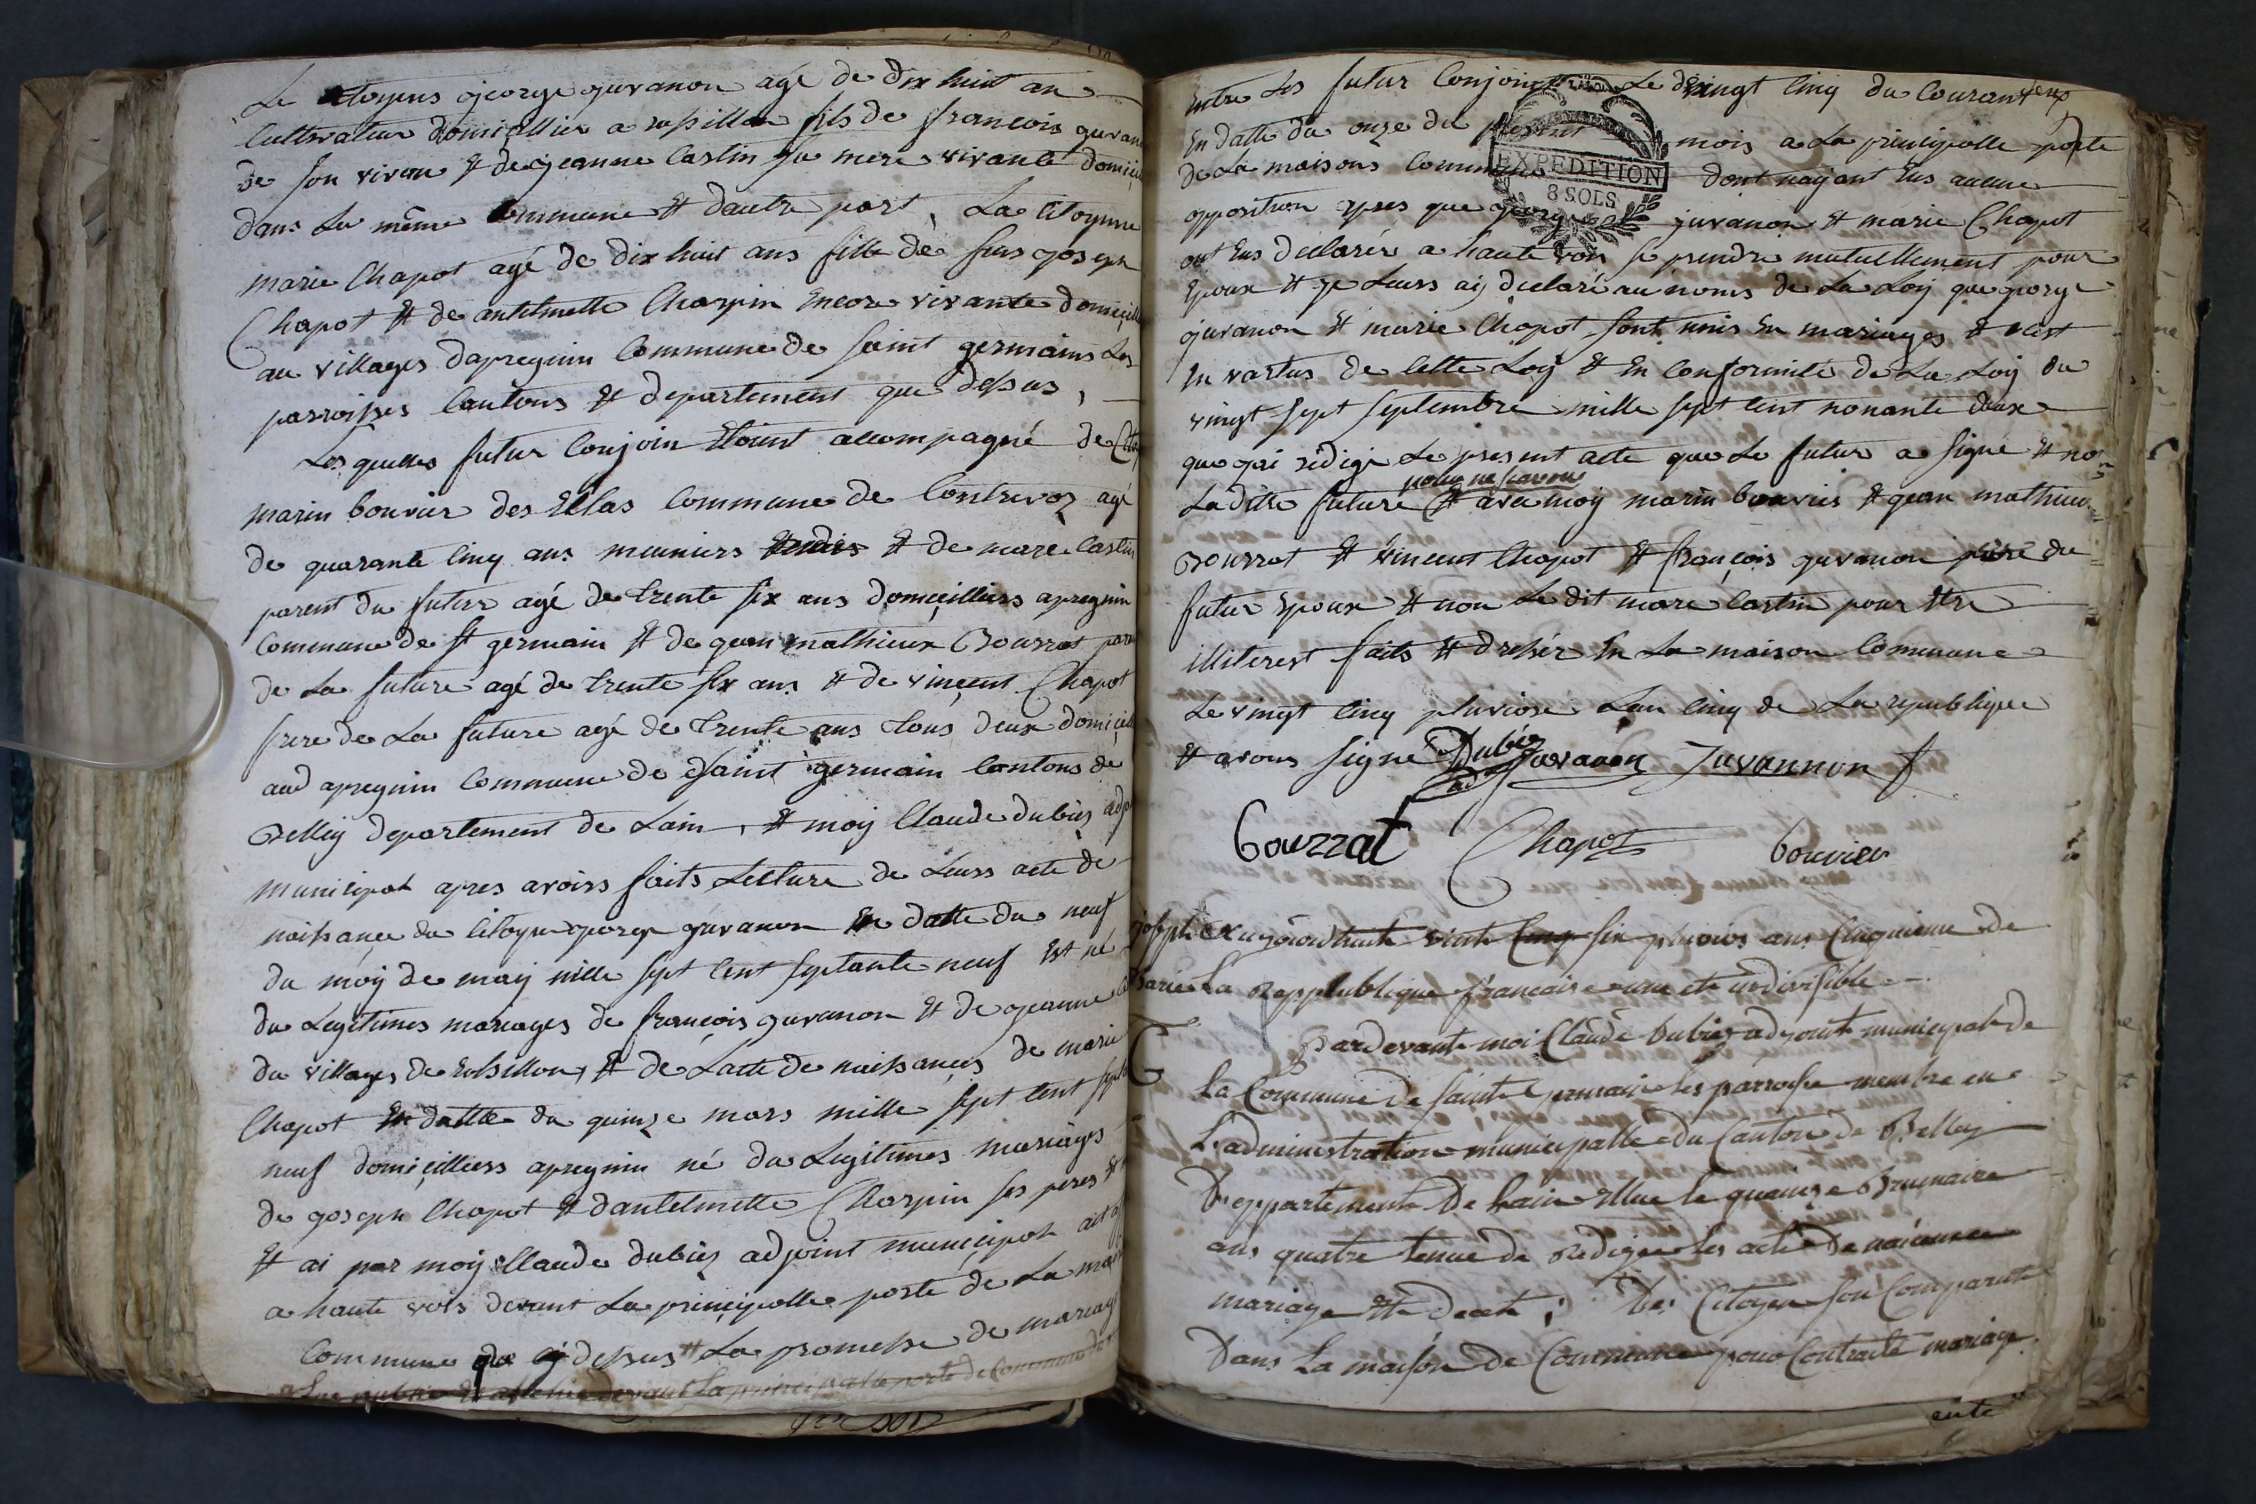 Le citoyens george juvanon agé de dix huit an
Cultivateur domicillier a rossillon fils de francois guvan
de son vivan et de jeanne Castin sa mere vivante domici
dans La même Commune et dautre part, La Citoyene
marie Chapot agé de dix huit ans fille de feus joseph
Chapot et de antelmette Charpin Encore vivante domicill
au villages dapregnin Commune de saint germains Les
parroisses Cantons et departement que dessus,
Les quelles futur Conjoin Etoint accompagné de
marin bouvier des Ellas Commune de Contrevoz agé
de quarante Cinq ans meuniers et de marc Castin
parent du futur agé de trente six ans domicilliers apregnin
Commune de st germain et de jean mathieux Bourrat
de La future agé de trente six ans et de vincent Chapot
frere de La future agé de trente ans tous deux domicill
aud apregnin Commune de saint germain Cantons de
Belley departement de Lain, et moy Claude dubiez adj
municipal apres avoirs faits Lecture de Leurs acte de
naissance du Citoyen george juvanon En datte du neuf
du moy de may mille sept Cent septante neuf Est né
du Legitimes mariages de françois guvanon et de jeanne
du villages de Rossillon, et de Lacte de naissances de marie
Chapot En datte du quinze mars mille sept Cent sept
neuf domicilliers apregnin né du Legitimes mariages
de joseph Chapot et dantelmette Charpin ses peres et
et ai par moy Claude dubiez adjoint municipal
a haute voix devant La principalle porte de La
Commune que cy dessus et La promesse de mariage
devant La principalle porte de Commune
Entre Les futur Conjoin Le vingt Cinq du Courant
En datte du onze du présent mois a La principalle porte
de La maisons Commune dont nayant Eus aucune
opposition apres que george juvanon et marie Chapot
ont Eus declarér a haute voix se prendre mutuellement pour
Epoux et je Leurs aij declaré au noms de La Loy que george
juvanon et marie Chapot sont unis En mariages et cest
En vartus de Cette Loy et En Conformité de La Loy du
vingt sept septembre mille sept Cent nonante deux
que jai rédigé Le present acte que Le futur a signé et non
pour ne savoir
La ditte future et avec moy marin bouvier et jean mathieu
Bourrat et vincent Chapot et françois guvanon père du
futur Epoux et non Le dit marc Castin pour Etre
illiterest faits et dressér En La maison Commune
Le vingt Cinq pluviose Lan Cinq de La republique
et avons signé Dubiéz Juvanon Juvannon
adj
EXPEDITION
8 SOLS
Bourrat Chapot bouvier
joseph
Marie
Aujourdhuit vint Cinq six pluvios ans Cinquieme de
La Republique francaise une et indivisible
Pardevant moi Claude Dubiez adjoint municipal de
La Commune de saint Germain les parroisse membre en
Ladministration municipalle du Canton de Belley
Deppartement De Lain Ellue le quainze Brumaire
ans quatre tenue de Redigee les acte De naicance
mariage et decet; Les Citoyen son Comparut
Dans La maison de Commune pour Contracté mariage